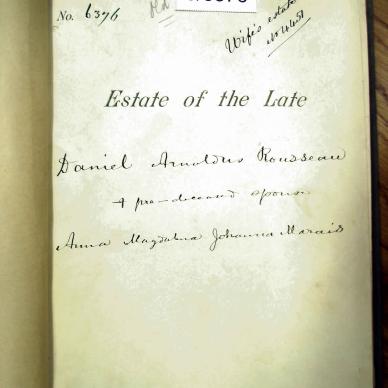 No. 6376
old
Wife's estate
Estate of the Late
Daniel Arnoldus Rousseau
& pre-deceased spouse
Anna Magdalena Johanna Marais